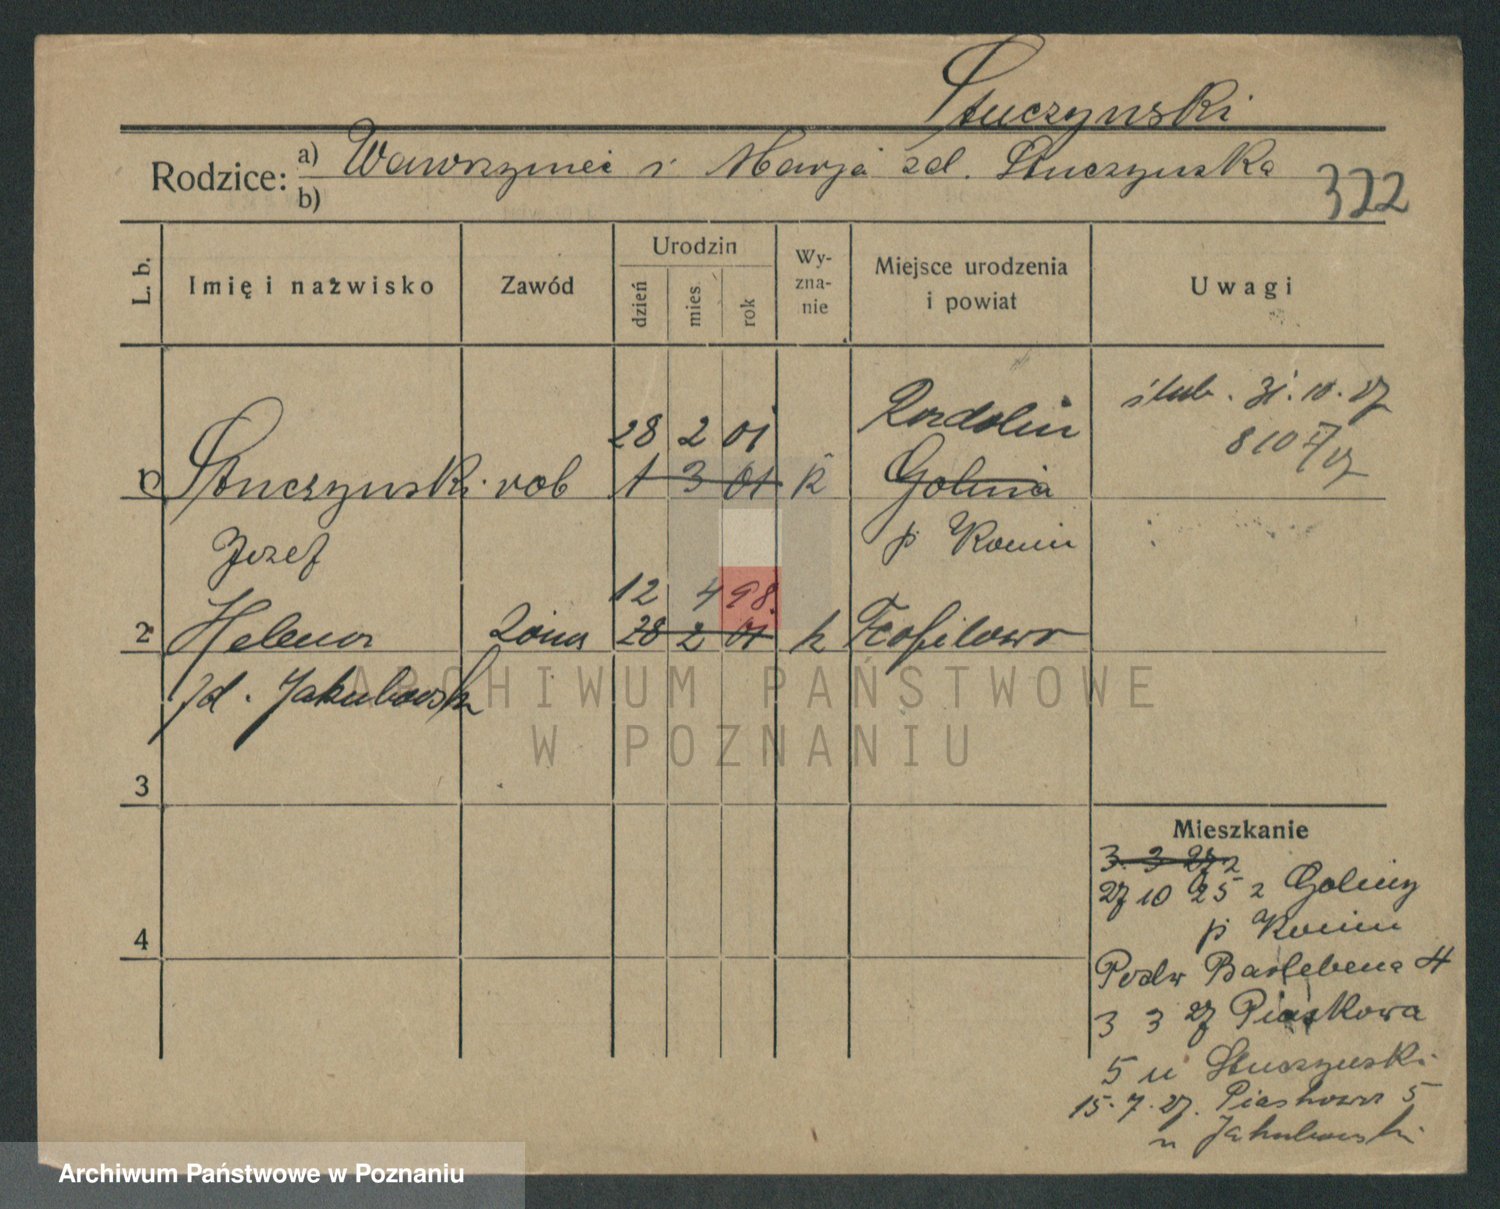 Stuczynski
Rodzice: a) Wawrzyniec i Marja zd. Stuczynska
b)
322
L. b.
Imię i nazwisko
Zawód
Urodzin
dzień
mies.
rok
Wy-
zna-
nie
Miejsce urodzenia
i powiat
Uwagi
ślub. 31.10.27
28 2 01
810
1 Stuczynski rob 1 3 01 k Golina
Jozef
p Konin
12 4 98.
2 Helena żona 28 2 01 k Teofilowo
zd. Jakubowska
3
4
Mieszkanie
3. 3 27 z
27 10 25 z Goliny
p Konin
Podw Bartebena 4
3 3 27 Piaskowa
5 u Stuczynski
15.7.27. Piaskowa 5
u Jakubowski
ARCHIWUM PAŃSTWOWE
W POZNANIU
Archiwum Państwowe w Poznaniu